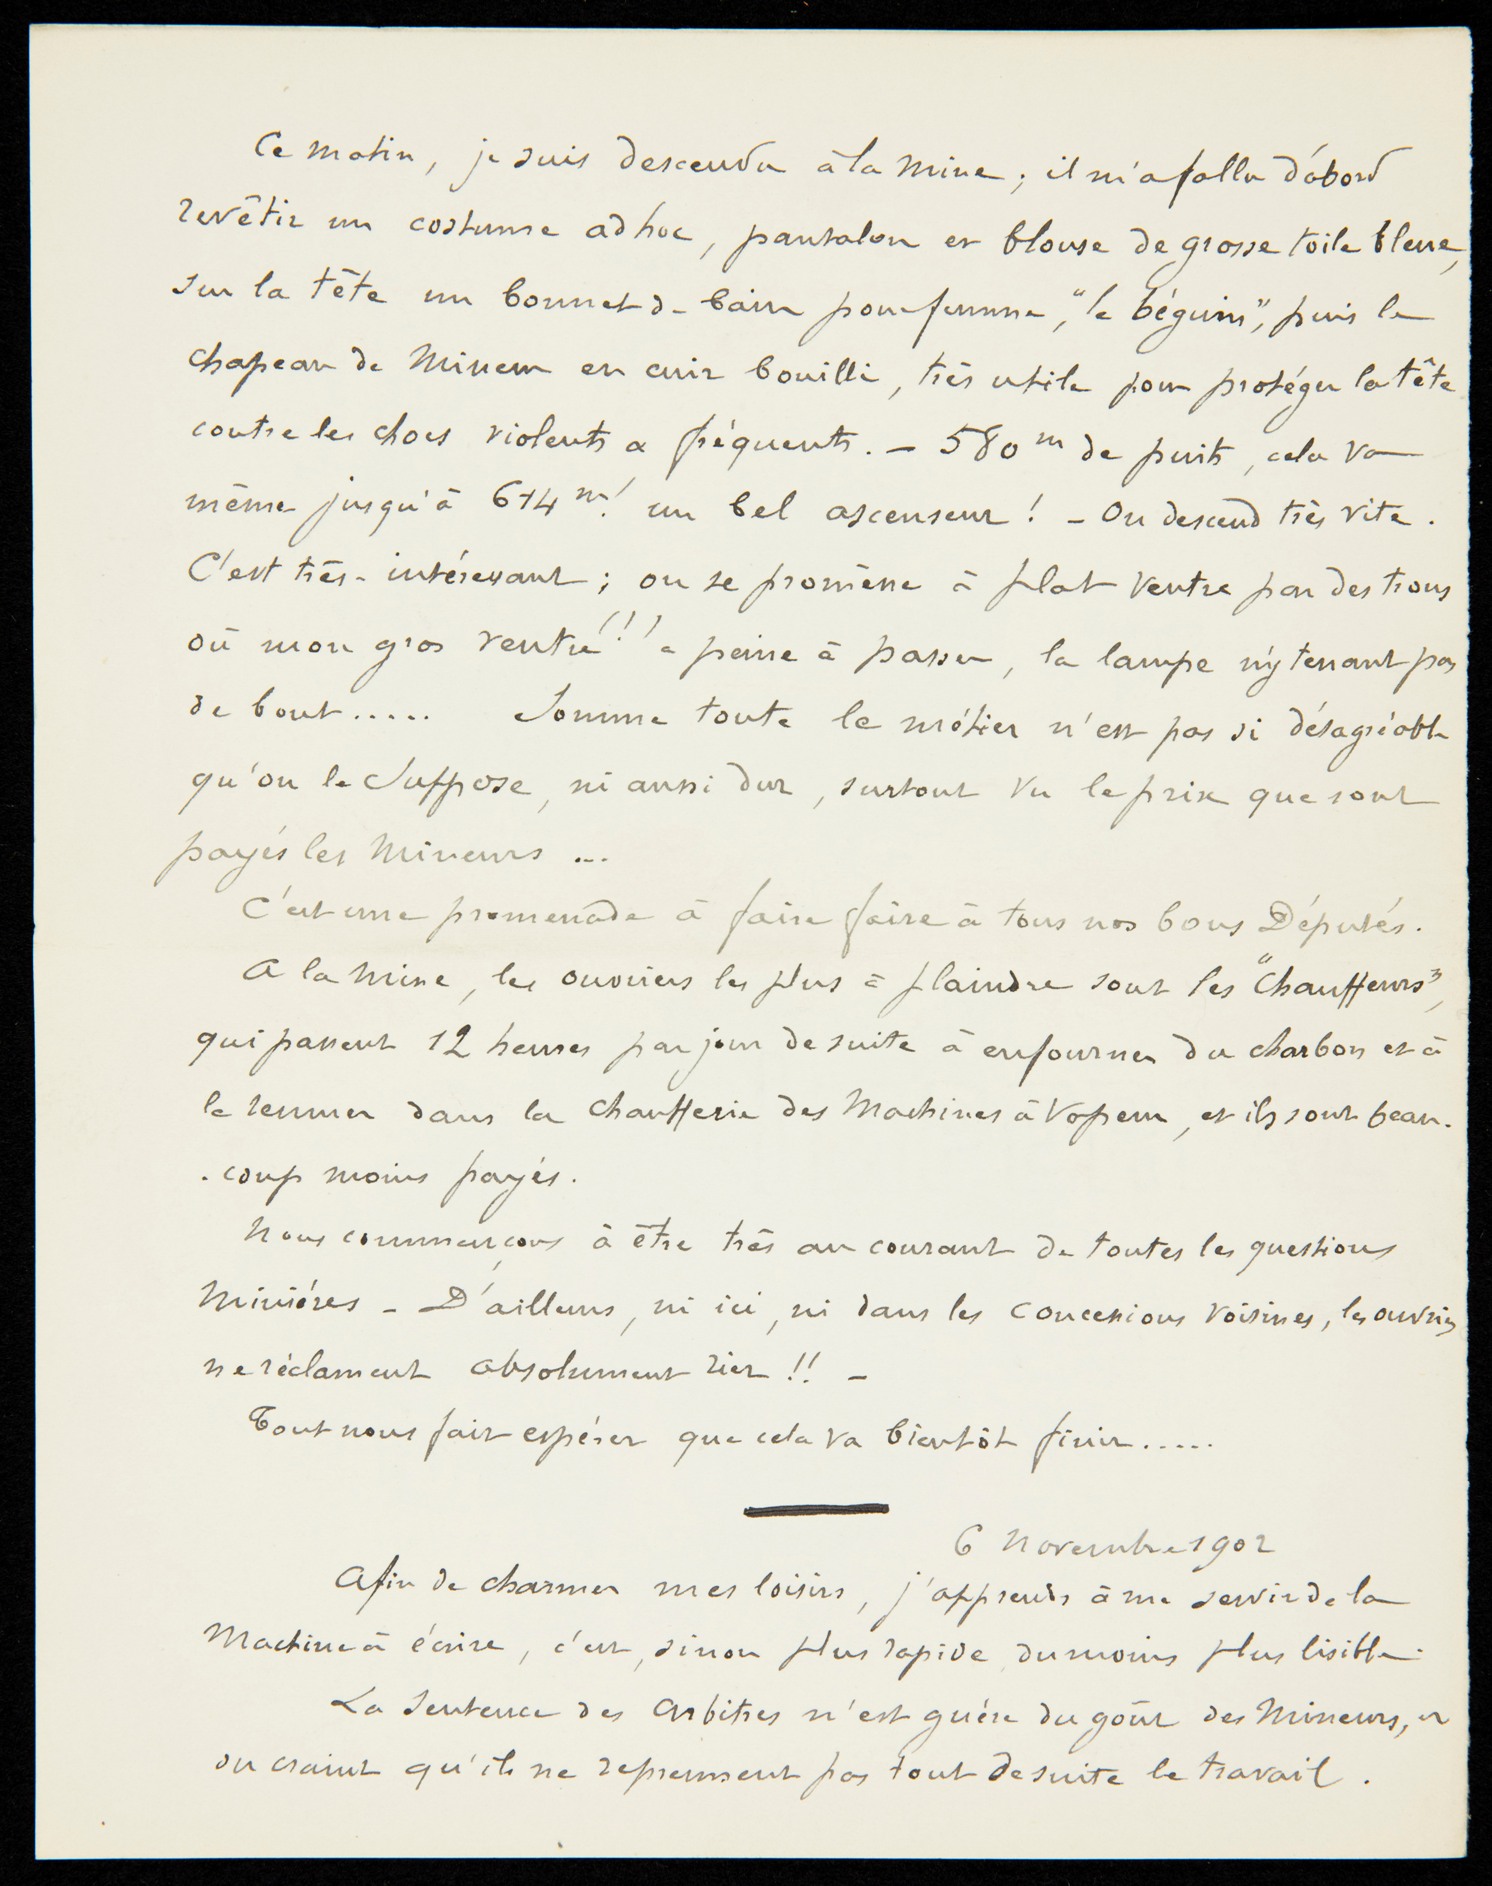 Ce matin, je suis descendu à la mine ; il m'a fallu d'abord
revêtir un costume ad hoc, pantalon et blouse de grosse toile bleue,
sur la tête un bonnet de bain pour femme, "le béguin", puis le
chapeau de Mineur en cuir bouilli, très utile pour protéger la tête
contre les chocs violents & fréquents. - 580 m de puits, cela va
même jusqu'à 614 m ! un bel ascenseur ! - On descend très vite.
C'est très-intéressant ; on se promène à plat ventre par des trous
où mon gros ventre !!! a peine à passer, la lampe n'y tenant pas
de bout ..... Somme toute le métier n'est pas si désagréable
qu'on le suppose, ni aussi dur, surtout vu le prix que sont
payés les Mineurs ...
C'est une promenade à faire faire à tous nos bons Députés.
A la Mine, les ouvriers les plus à plaindre sont les "Chauffeurs",
qui passent 12 heures par jour de suite à enfourner du charbon et à
le remuer dans la chaufferie des Machines à Vapeur, et ils sont beau-
-coup moins payés.
Nous commençons à être très au courant de toutes les questions
Minières - D'ailleurs, ni ici, ni dans les concessions voisines, les ouvriers
ne réclament absolument rien !! -
Tout nous fait espérer que cela va bientôt finir .....
6 Novembre 1902
Afin de charmer mes loisirs, j'apprends à me servir de la
Machine à écrire, c'est, sinon plus rapide du moins plus lisible.
La Sentence des Arbitres n'est guère du goût des Mineurs, et
on craint qu'ils ne reprennent pas tout de suite le travail.